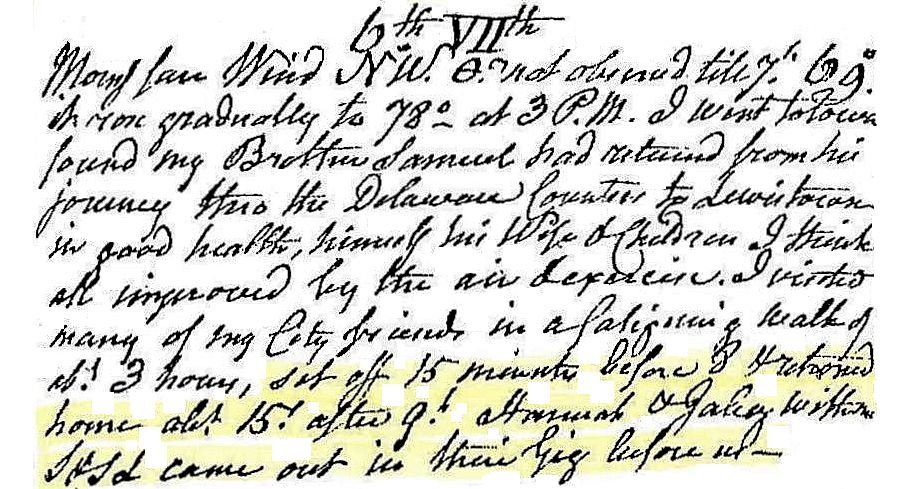 6th VIIth
Morng fair Wind NW. not observed till 7h. 69°.
it rose gradually to 78° at 3 P.M. I went to town
found my Brother Samuel had returned from his
journey thro the Delaware Counties to Lewistown
in good health, himself his Wife & Children I think
all improved by the air & exercise. I visited
many of my City friends in a fatiguing walk of
abt. 3 hours, set off 15 minutes before 8 & returned
home abt. 15' after 9h. Hannah &
came out in their Gig before us —